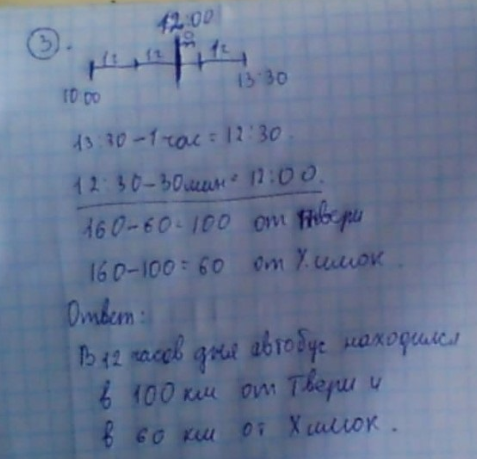 3.
12:00
1ч 1ч 1ч
10:00 13:30
13:30-1 час = 12:30.
12:30-30мин = 12:00.
160-60=100 от Твери
160-100=60 от Химок.
Ответ:
В 12 часов дня автобус находился
в 100 км от Твери и
в 60 км от Химок.